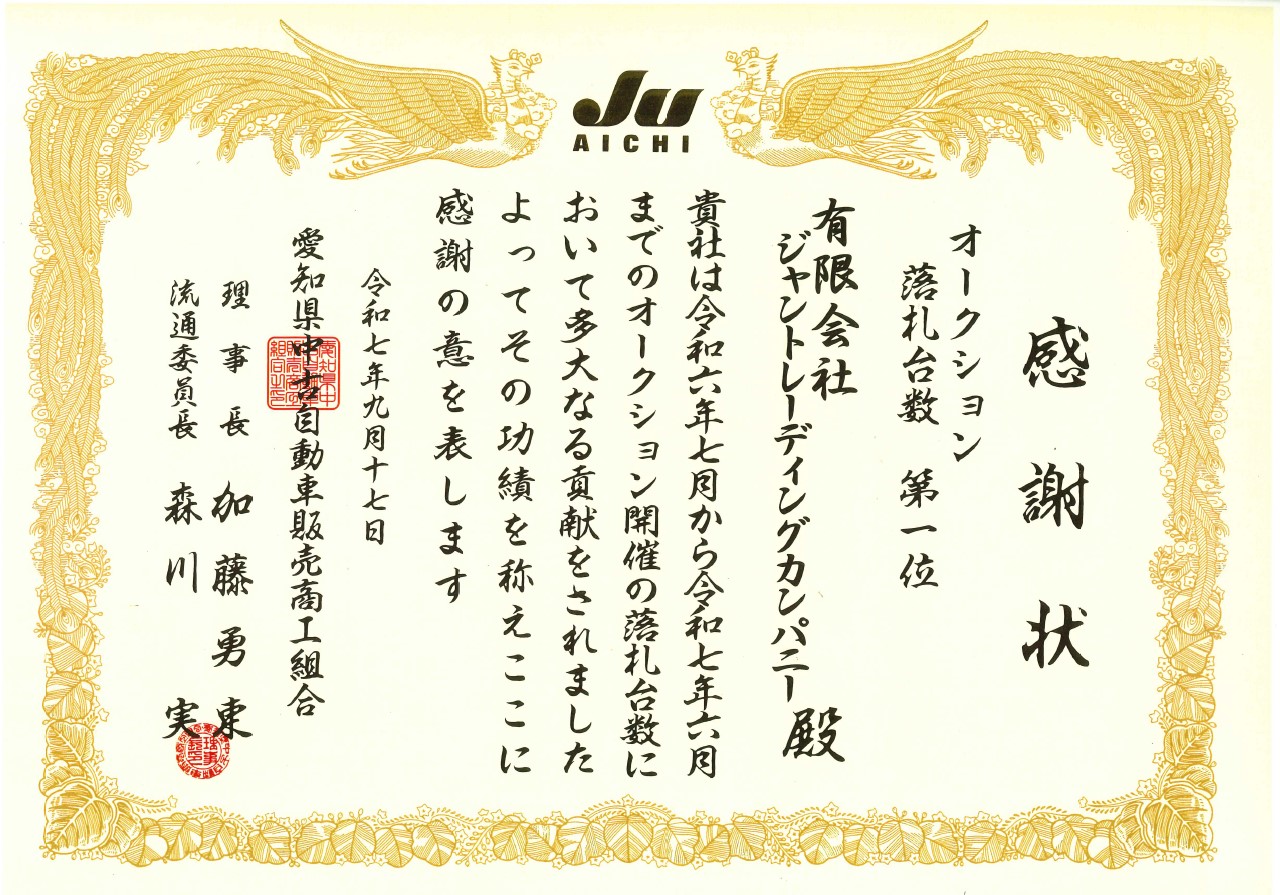 Ju
AICHI
感謝状
オークション
落札台数 第一位
有限会社
ジャントレーディングカンパニー 殿
貴社は令和六年七月から令和七年六月
までのオークション開催の落札台数に
おいて多大なる貢献をされました
よってその功績を称えここに
感謝の意を表します
令和七年九月十七日
愛知県中古自動車販売商工組合
理事長 加藤勇東
流通委員長 森川 実